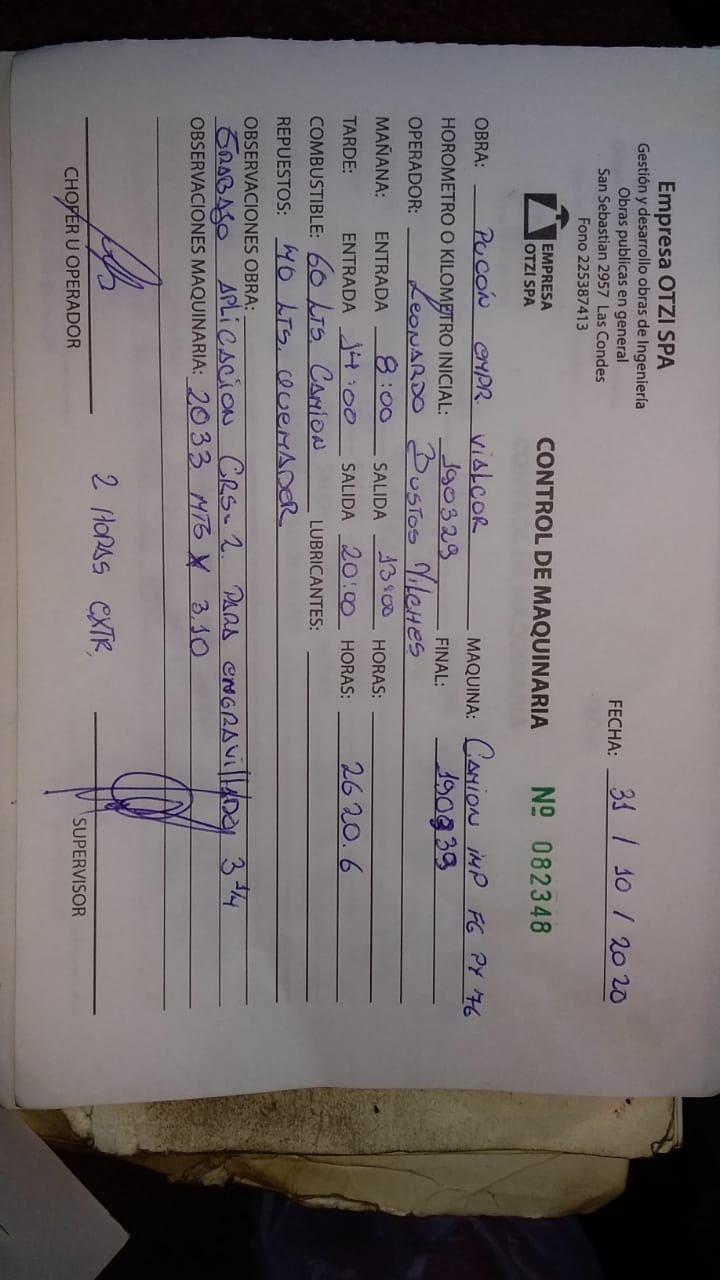 Empresa OTZI SPA
Gestión y desarrollo obras de Ingeniería
Obras publicas en general
San Sebastian 2957 Las Condes
Fono 225387413
FECHA: 31 / 10 / 2020
EMPRESA
OTZI SPA
CONTROL DE MAQUINARIA Nº 082348
OBRA: PUCÓN EMPR. VIALCOR MAQUINA: CAMION IMP FG PY 76
HOROMETRO O KILOMETRO INICIAL: 190329 FINAL: 190339
OPERADOR: LEONARDO BUSTOS VILCHES
MAÑANA: ENTRADA 8:00 SALIDA 13:00 HORAS:
TARDE: ENTRADA 14:00 SALIDA 20:00 HORAS: 2620.6
COMBUSTIBLE: 60 LTS CAMION LUBRICANTES:
REPUESTOS: 40 LTS. QUEMADOR
OBSERVACIONES OBRA:
TRABAJO APLICACION CRS-2. PARA 3 1/4
OBSERVACIONES MAQUINARIA: 2033 MTS X 3.10
2 HORAS EXTR,
CHOFER U OPERADOR SUPERVISOR